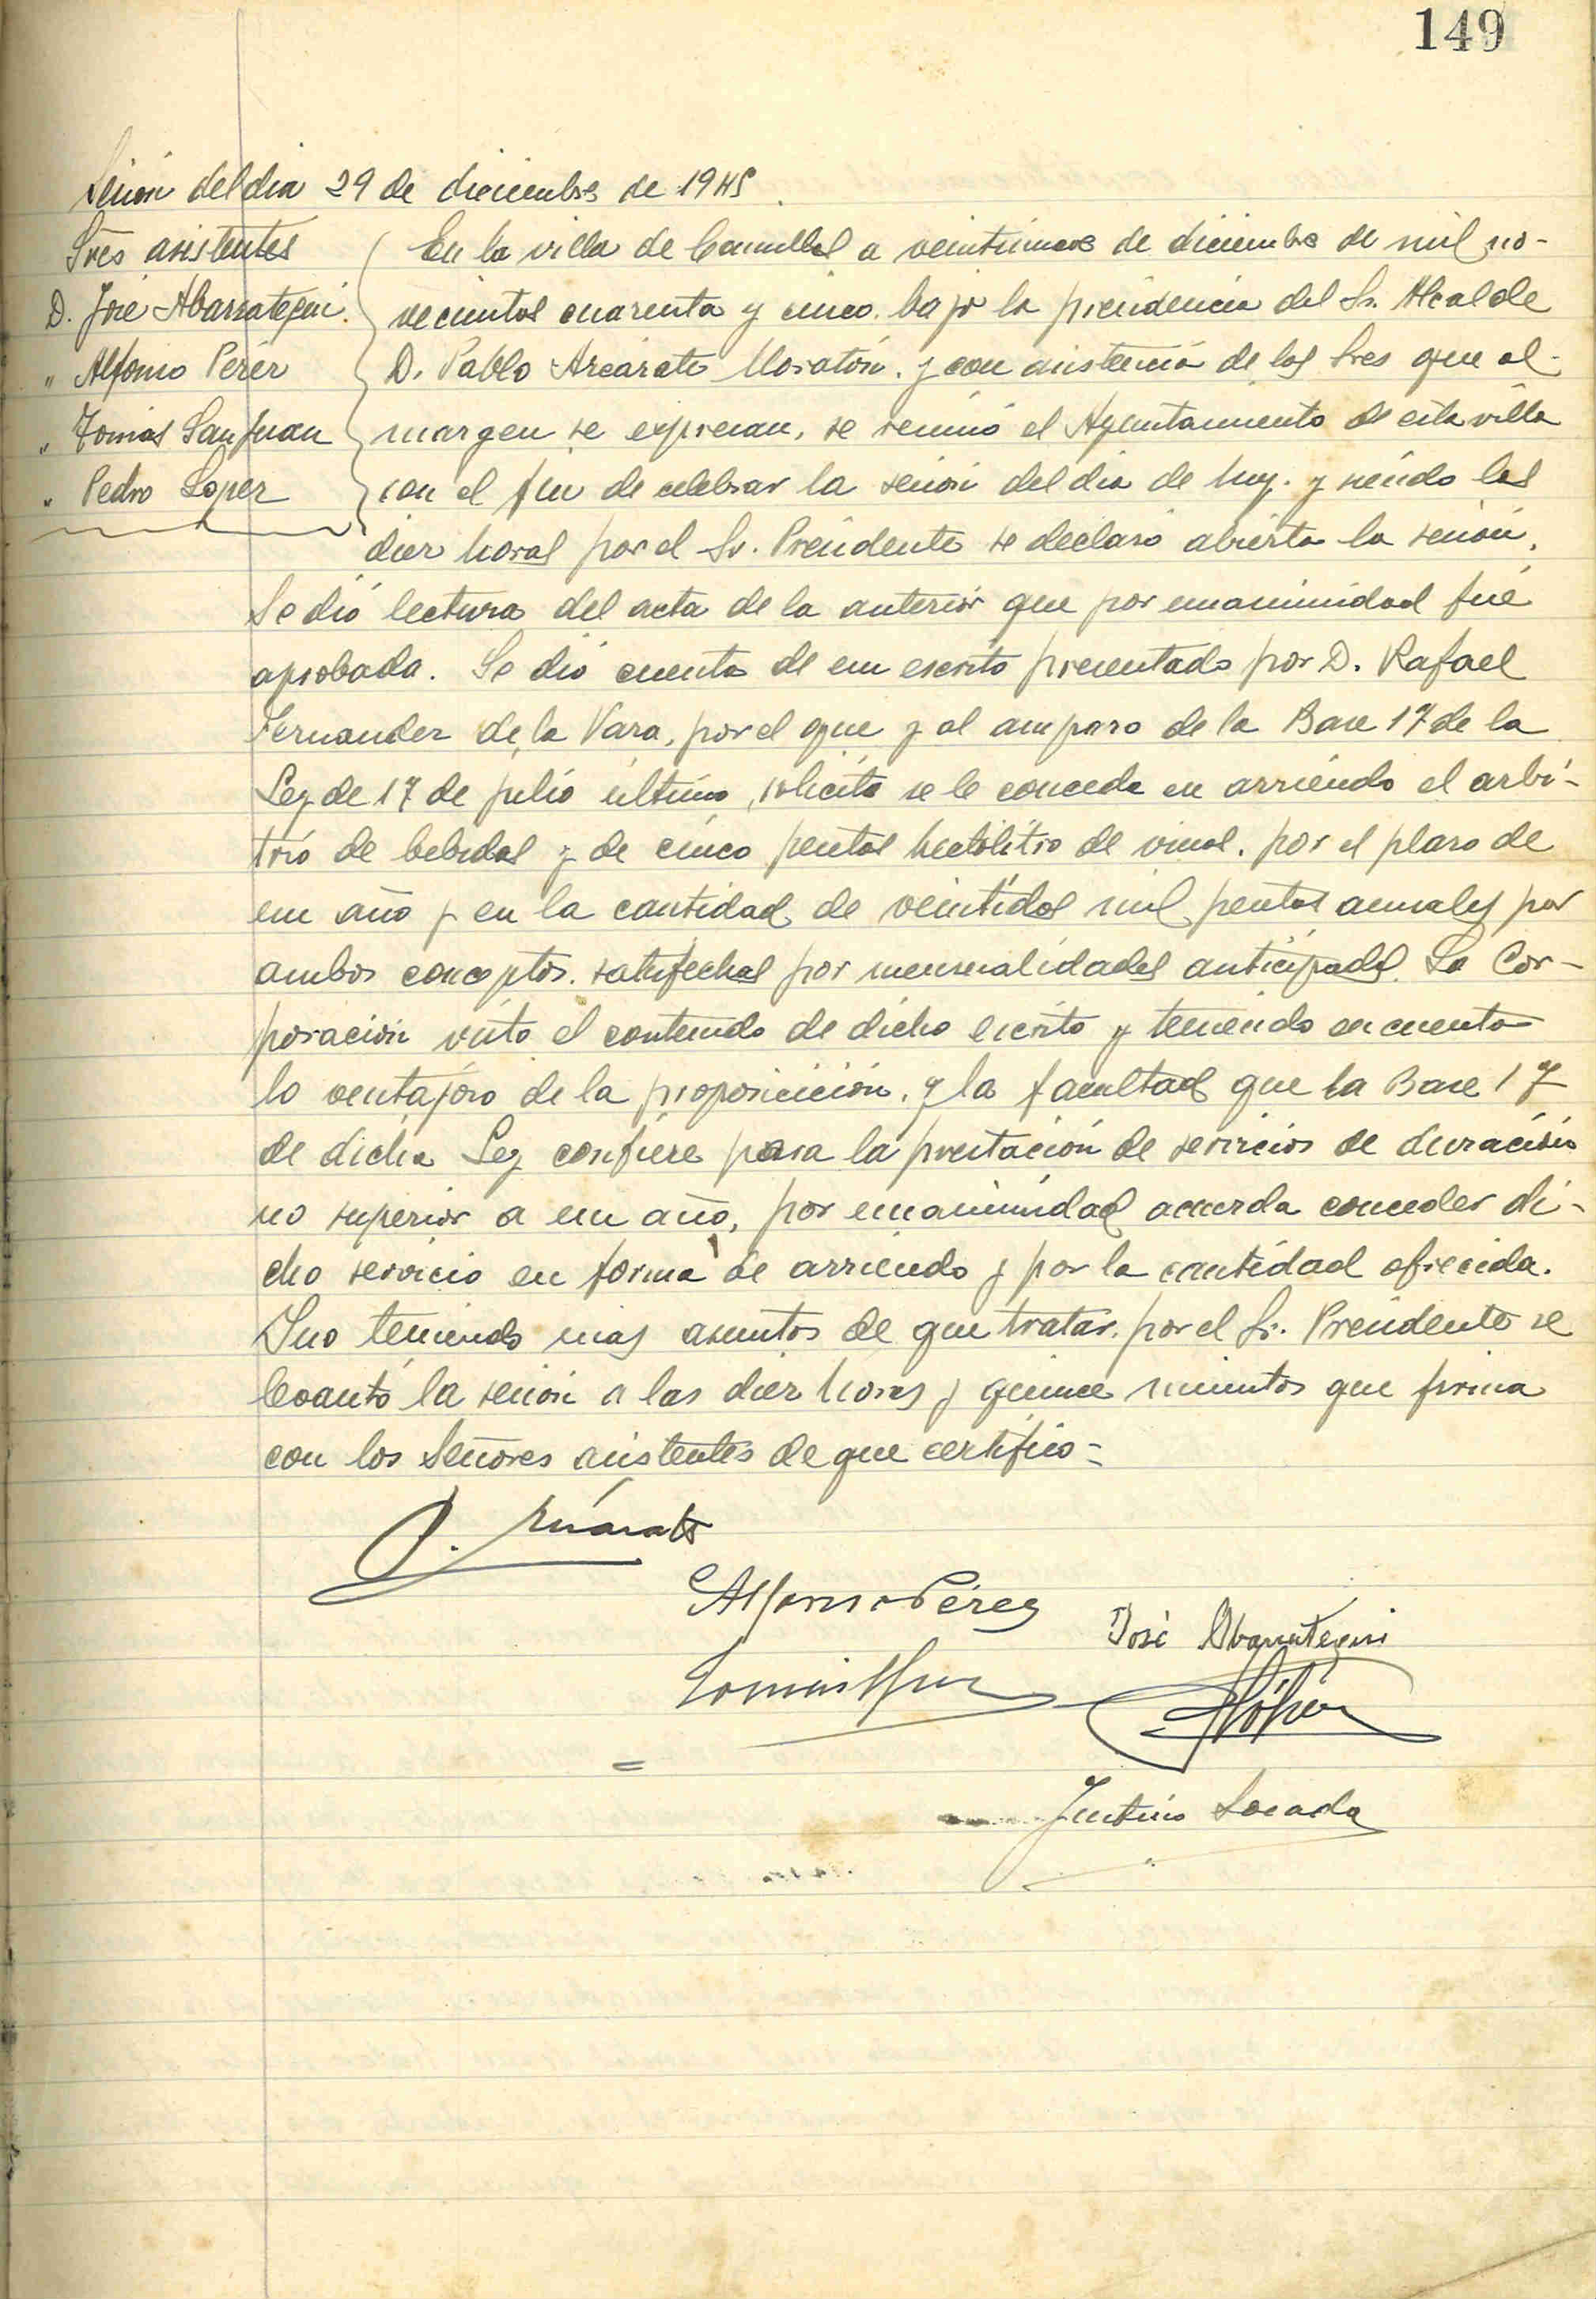 149
Sesión del dia 29 de diciembre de 1945.
Sres asistentes
D. José Abarrategui.
" Alfonso Pérez
" Tomás Sanjuan
" Pedro Lopez
En la villa de a veintinueve de diciembre de mil no-
vecientos cuarenta y cinco. bajo la presidencia del Sr. Alcalde
D. Pablo Azcárate Moratón. y con asistencia de los Sres que al
margen se expresan, se reunió el Ayuntamiento de esta villa
con el fin de celebrar la sesión del dia de hoy. y siendo las
diez horas por el Sr. Presidente se declaró abierta la sesión.
Se dió lectura del acta de la anterior que por unanimidad fué
aprobada. Se dió cuenta de un escrito presentado por D. Rafael
Fernandez de la Vara, por el que y al amparo de la Base 17 de la
Ley de 17 de julio último, solicita se le conceda en arriendo el arbi-
trio de bebidas y de cinco pesetas hectolitro de vinos. por el plazo de
un año y en la cantidad de veintidos mil pesetas anuales por
ambos conceptos. satisfechas por mensualidades anticipadas. La Cor-
poración visto el contenido de dicho escrito y teniendo en cuenta
lo ventajoso de la proposicición. y la facultad que la Base 17
de dicha Ley confiere para la prestación de servicios de duración
no superior a un año, por unanimidad acuerda conceder di-
cho servicio en forma de arriendo y por la cantidad ofrecida.
Y no teniendo mas asuntos de que tratar. por el Sr. Presidente se
levantó la sesión a las diez horas y quince minutos que firma
con los Señores asistentes de que certifico-
P. Azcárate
Alfonso Pérez
José Abarrategui
P López
Justino Losada